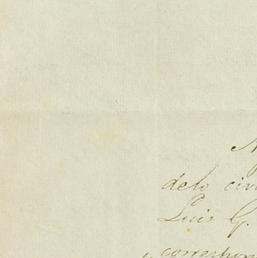 delo civ
Luis G.
correspon